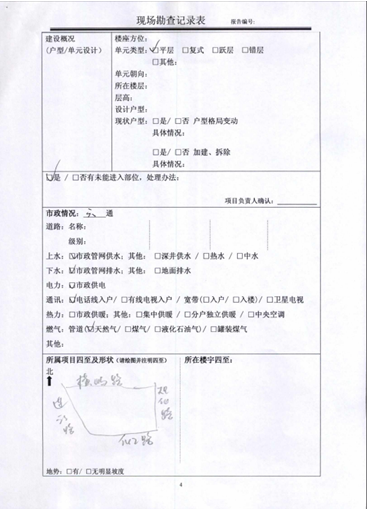 现场勘查记录表 报告编号:
建设概况
(户型/单元设计)
楼座方位:
单元类型:☑平层 □复式 □跃层 □错层
□其他:
单元朝向:
所在楼层:
层高:
设计户型:
现状户型:□是/□否 户型格局变动
具体情况:
□是/□否 加建、拆除
具体情况:
☑是/□否有未能进入部位,处理办法:
项目负责人确认:
市政情况: 六 通
道路: 名称:
级别:
上水: ☑市政管网供水; 其他: □深井供水 / □热水 / □中水
下水: ☑市政管网排水; 其他: □地面排水
电力: ☑市政供电
通讯: ☑电话线入户/ □有线电视入户 / 宽带(□入户/ □入楼)/ □卫星电视
热力: □市政供暖; 其他: □集中供暖 / □分户独立供暖 / □中央空调
燃气: 管道(☑天然气/ □煤气/ □液化石油气)/ □罐装煤气
其他:
所属项目四至及形状(请绘图并注明四至)
所在楼宇四至:
北
路
路
路
路
地势: □有/ □无明显坡度
4